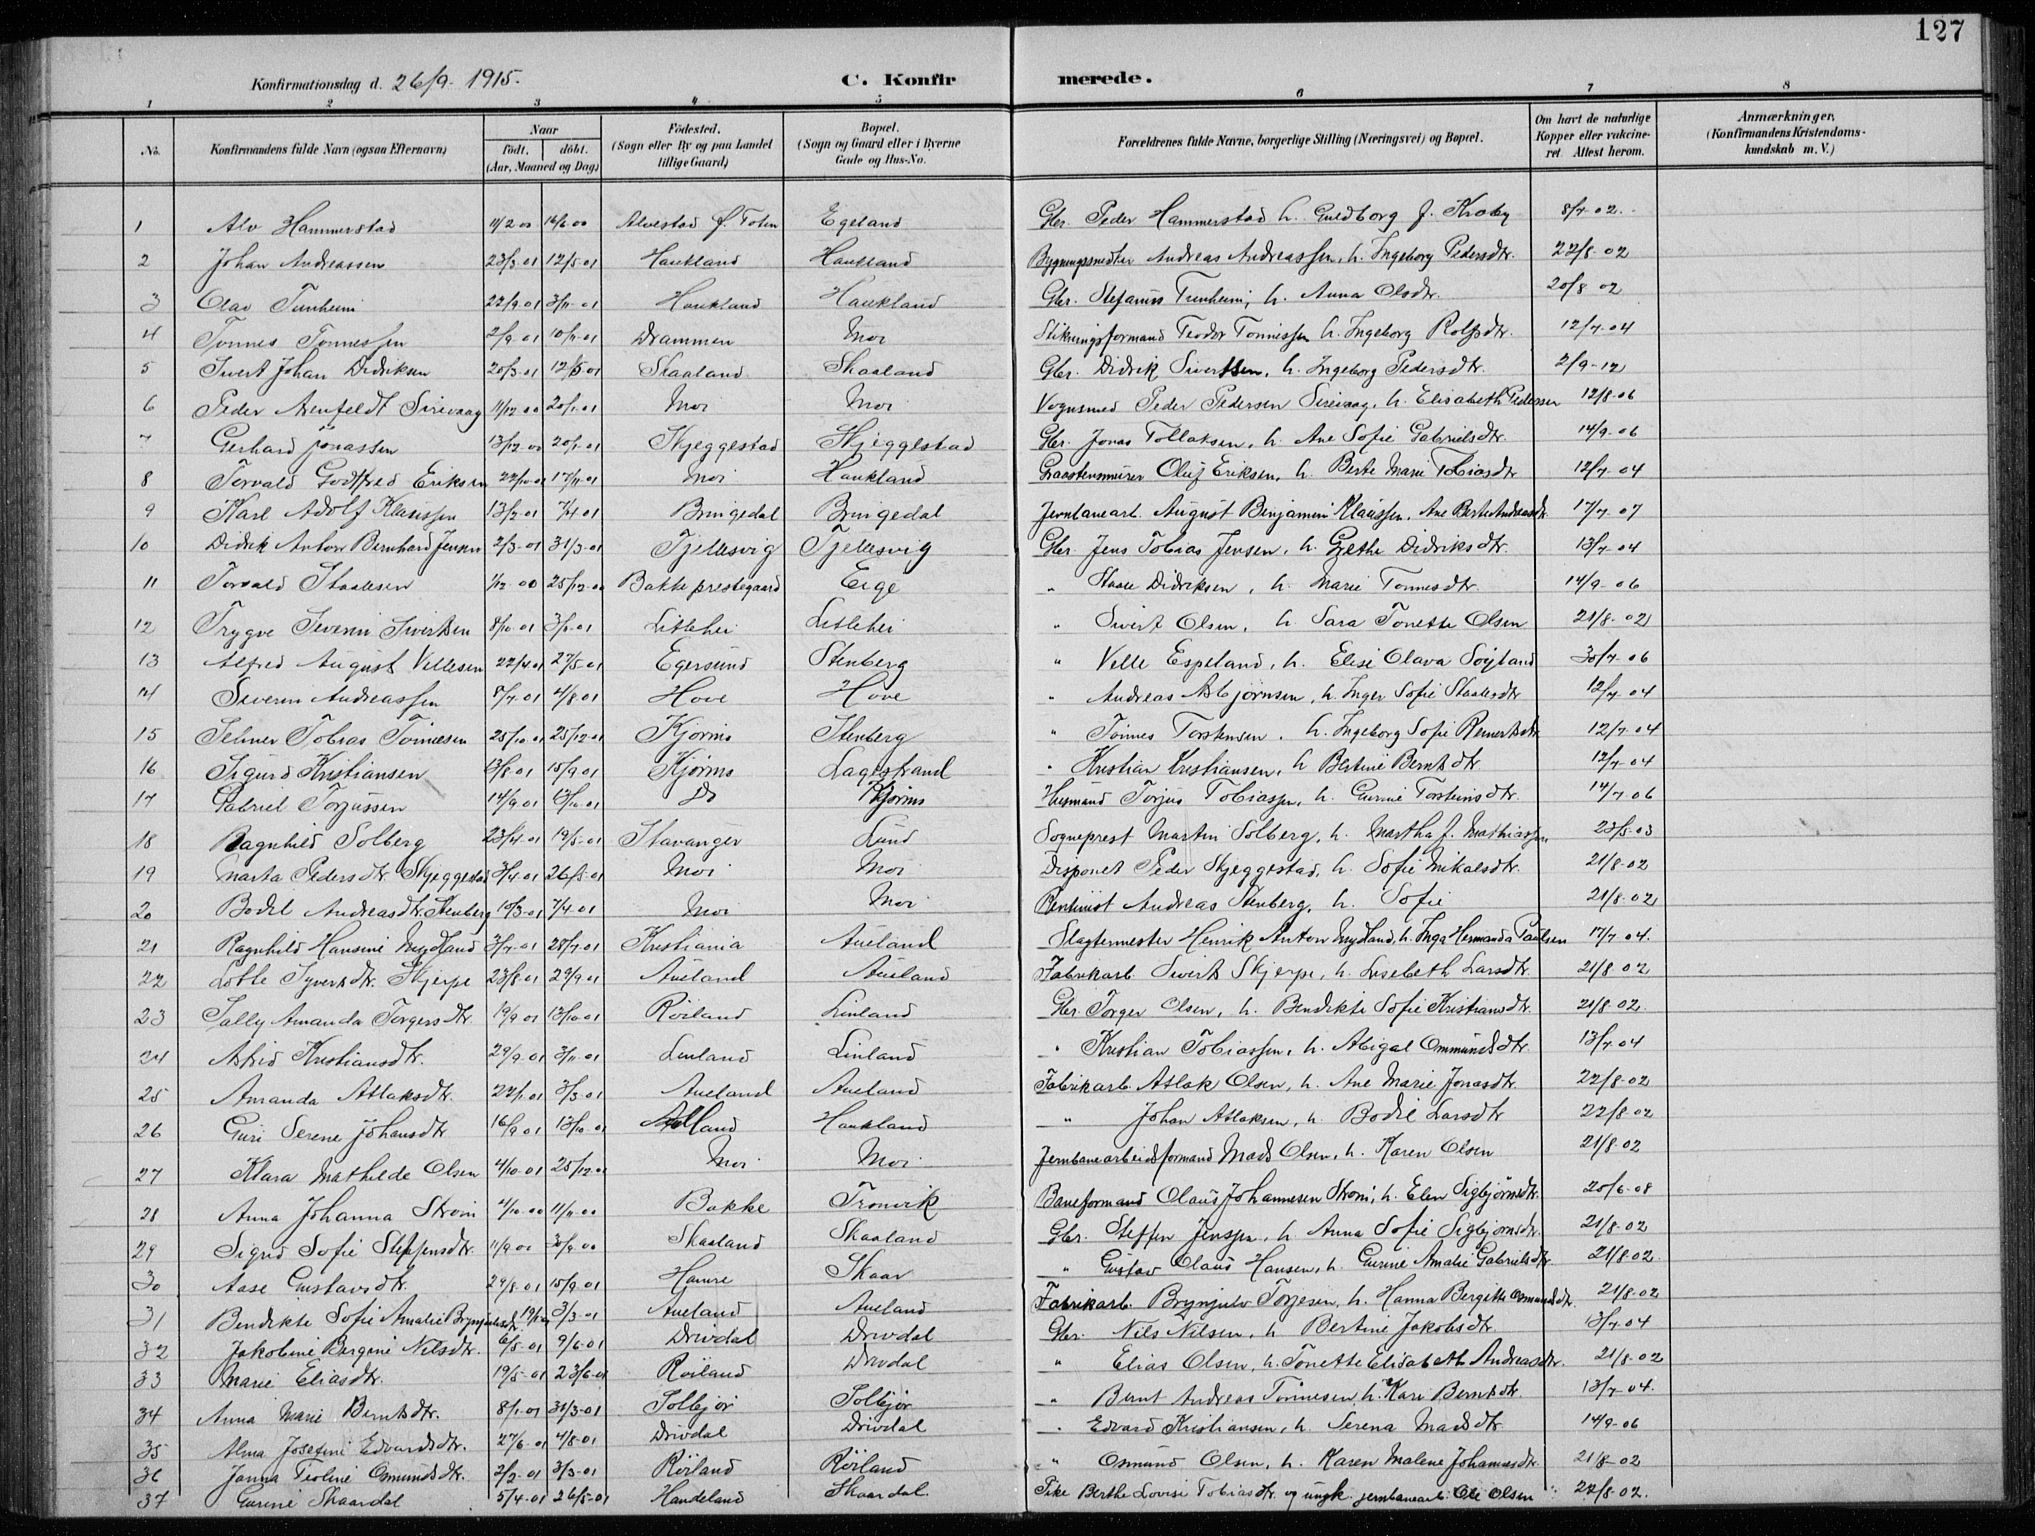 127
Konfirmationsdag d. 26/9 1915. C. Konfirmerede.
1 2 3 4 5 6 7 8
No. Konfirmandens fulde Navn (ogsaa Efternavn) Naar født. døbt. (Aar, Maaned og Dag) Fødested. (Sogn eller By og paa Landet tillige Gaard) Bopæl. (Sogn og Gaard eller i Byerne Gade og Hus-No. Forældrenes fulde Navne, borgerlige Stilling (Næringsvei) og Bopæl. Om havt de naturlige Kopper eller vakcineret. Attest herom. Anmærkninger, (Konfirmandens Kristendomskundskab m. V.)
1 Alv Hammerstad 11/2 00 16/6 00 Alvestad Ø. Toten Egeland Gbr. Peder Hammerstad h. Guldborg f. Kroby 8/7 02.
2 Johan Andreassen 23/3 01 12/5 01 Haukland Haukland Bygningssnedker Andreas Andreassen, h. Ingeborg Pedersdtr. 22/8 02
3 Olav Tunheim 22/9 01 3/11 01 Haukland Haukland Gbr. Stefanus Tunheim, h. Anna Olsdtr. 20/8 02
4 Tønnes Tønnessen 2/9 01 10/11 01 Drammen Moi Stikningsformand Teodor Tønnessen h. Ingeborg Rolfsdtr. 12/7 04
5 Sivert Johan Didriksen 20/3 01 12/5 01 Skaaland Skaaland Gbr. Didrik Sivertsen, h. Ingeborg Pedersdtr. 2/9 12
6 Peder Arenfeldt Sirevaag 11/12 00 20/1 01 Moi Moi Vognsmed Peder Pedersen Sirevaag, h. Elisabeth Pedersen 12/8 06
7 Gerhard Jonassen 13/12 00 20/1 01 Skjeggestad Skjeggestad Gbr. Jonas Tollaksen, h. Ane Sofie Gabrielsdtr 14/9 06
8 Torvald Godtfred Eriksen 22/10 01 17/11 01 Moi Haukland Graastensmurer Oluf Eriksen, h. Berte Marie Tobiasdtr 12/7 04
9 Karl Adolf Klausen 13/2 01 7/4 01 Bringedal Bringedal Jernbanearb. August Benjamin Klaussen, Ane Berte Andreasdtr. 17/7 07
10 Didrik Anton Bernhard Jensen 2/3 01 31/3 01 Tjellesvig Tjellesvig Gbr. Jens Tobias Jensen, h. Grethe Didriksdtr. 13/7 04
11 Torvald Staalesen 1/12 00 25/12 00 Bakke prestegaard Eige " Staale Didriksen, h. Marie Tønnesdtr. 14/9 06
12 Trygve Severin Sivertsen 8/10 01 3/11 01 Litlehei Litlehei " Sivert Olsen, h. Sara Tonette Olsen 21/8 02
13 Alfred August Vellesen 22/4 01 27/5 01 Egersund Stenberg " Velle Espeland, h. Elise Olava Søyland 30/7 06
14 Severin Andreassen 8/7 01 4/8 01 Hove Hove " Andreas Asbjørnsen, h. Inger Sofie Staalesdtr 12/7 04
15 Selmer Tobias Tønnesen 25/10 01 25/12 01 Kjørmo Stenberg " Tønnes Torstensen, h. Ingeborg Sofie Reinertsdtr. 12/7 04
16 Sigurd Kristiansen 13/8 01 15/9 01 Kjørmo Lagestrand " Kristian Kristiansen, h. Bertine Berntsdtr. 12/7 04
17 Gabriel Torjussen 14/9 01 13/10 01 Do Kjørmo Husmand Torjus Tobiassen, h. Gurine Torsteinsdtr. 14/7 06
18 Ragnhild Solberg 23/4 01 19/5 01 Stavanger Lund Sogneprest Martin Solberg, h. Martha f. Mathiassen 23/5 03
19 Marta Pedersdtr. Skjeggestad 3/4 01 26/5 01 Moi Moi Disponet Peder Skjeggestad, h. Sofie Mikalsdtr. 21/8 02
20 Bodil Andreasdtr. Stenberg 10/3 01 7/4 01 Moi Moi Rentinist Andreas Stenberg, h. Sofie 21/8 02
21 Ragnhild Hansine Mydland 3/7 01 28/7 01 Kristiania Aueland Slagtermester Henrik Anton Mydland, h. Inga Hermanda Paulsen 17/7 04.
22 Lotte Syvertsdtr. Skjerpe 23/8 01 29/9 01 Aueland Aueland Fabrikarb. Sivert Skjerpe, h. Lisebeth Larsdtr. 21/8 02
23 Sally Amanda Torgersdtr. 19/9 01 13/10 01 Røiland Linland Gbr. Torger Olsen, h. Bendikte Sofie Kristiansdtr 21/8 02.
24 Astrid Kristiansdtr. 29/9 01 3/11 01 Linland Linland " Kristian Tobiassen, h. Abigal Ommundsdtr. 13/7 04
25 Amanda Atlaksdtr. 22/1 01 3/3 01 Aueland Aueland Fabrikarb. Atlak Olsen, h. Ane Marie Jonasdtr. 22/8 02
26 Guri Serene Johansdtr 16/9 01 13/10 01 Haukland Johan Atlaksen, h. Bodil Larsdtr 22/8 02
27 Klara Mathilde Olsen 4/10 01 25/12 01 Moi Moi Jernbanearbeidsformand Mads Olsen, h. Karen Olsen 21/8 02
28 Anna Johanna Strøm 4/10 00 11/11 00 Bakke Tronvik Baneformand Olaus Johannesen Strøm, h. Elen Sigbjørnsdtr. 20/6 08
29 Sigrid Sofie Steffensdtr. 11/9 00 30/9 00 Skaaland Skaaland Gbr. Steffen Jenssen, h. Anna Sofie Sigbjørnsdtr. 21/8 02
30 Aase Gustavsdtr. 29/8 01 15/9 01 Hamre Skaar " Gustav Olaus Hansen, h. Gurine Amalie Gabrielsdtr. 21/8 02.
31 Bendikte Sofie Amalie Brynjulvsdtr. 19/1 01 3/3 01 Aueland Aueland Fabrikarb. Brynjulv Torjesen, h. Hanna Bergitte Osmundsdtr. 21/8 02
32 Jakobine Bergine Nilsdtr. 6/5 01 9/6 01 Drivdal Drivdal Gbr. Nils Nilsen, h. Bertine Jakobsdtr. 13/7 04
33 Marie Eliasdtr. 19/5 01 23/6 01 Røiland Drivdal " Elias Olsen, h. Tonette Elisabeth Andreasdtr. 21/8 02
34 Anna Marie Berntsdtr. 8/1 01 31/3 01 Solbjør Solbjør " Bernt Andreas Tønnesen, h. Kari Berntsdtr 13/7 04.
35 Alma Josefine Edvardsdtr. 27/6 01 4/8 01 Drivdal Drivdal " Edvard Kristiansen, h. Serena Madsdtr. 14/9 06
36 Janna Teoline Osmundsdtr. 2/2 01 3/3 01 Røiland Røiland " Osmund Olsen, h. Karen Malene Johannesdtr. 21/8 02
37 Gurine Skaardal 5/4 01 26/5 01 Handeland Skaardal Pike Berthe Lovise Tobiasdtr. og ungk. jernbanearb. Ole Olsen 22/8 02.